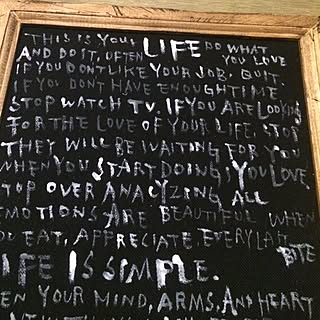 THIS IS YOUR LIFE DO WHAT
YOU LOVE
AND DO IT, OFTEN
IF YOU DONT LIKE YOUR JOB, QUIT.
IF YOU DONT HAVE ENOUGH TIME
STOP WATCH TV. IF YOU ARE LOOKING
FOR THE LOVE OF YOUR LIFE, STOP
THEY WILL BE WAITING FOR YOU
WHEN YOU START DOING, YOU LOVE.
TOP OVER ANALYZING ALL
EMOTIONS ARE BEAUTIFUL WHEN
OU EAT, APPRECIATE, EVERY LAST
BITE
IFE IS SIMPLE.
EN YOUR MIND, ARMS, AND HEART